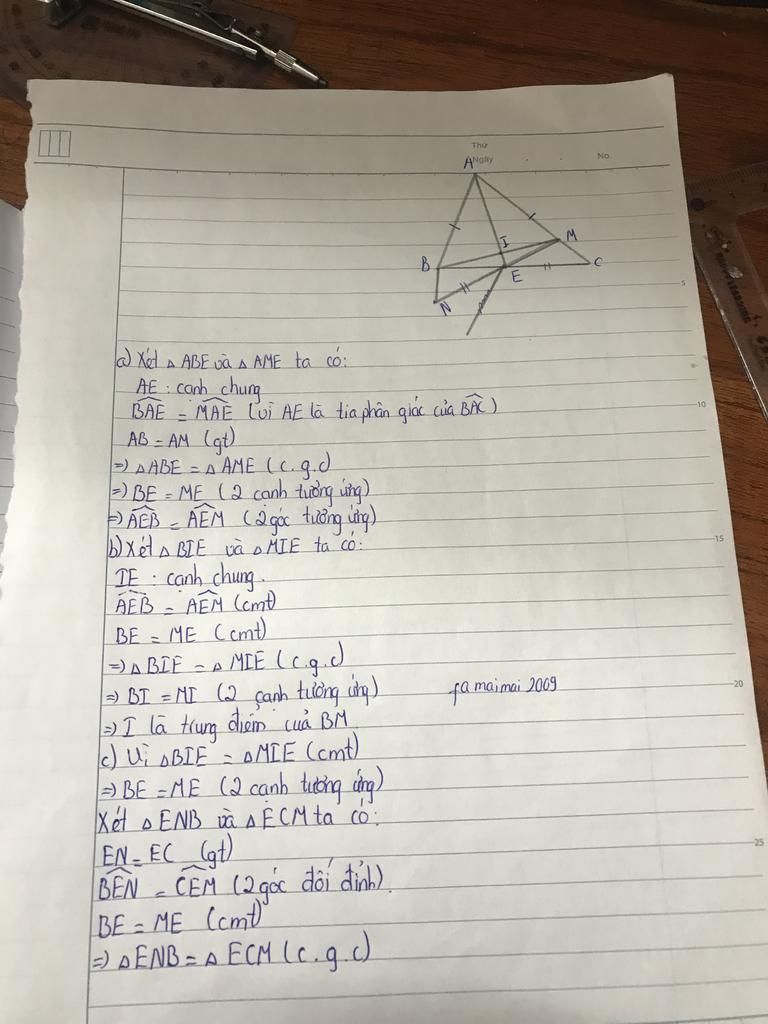 Thứ
Ngày
No.
A
B
I
M
E
C
N
5
a) Xét △ ABE và △ AME ta có:
AE : cạnh chung
BAE = MAE (vì AE là tia phân giác của BAC)
10
AB = AM (gt)
=> △ABE = △ AME (c.g.c)
=> BE = ME (2 cạnh tương ứng)
=> AEB = AEM (2 góc tương ứng)
b) Xét △ BIE và △ MIE ta có:
15
IE : cạnh chung.
AEB = AEM (cmt)
BE = ME (cmt)
=> △ BIE = △ MIE (c.g.c)
=> BI = MI (2 cạnh tương ứng)
fa maimai 2009
20
=> I là trung điểm của BM
c) Vì △BIE = △MIE (cmt)
=> BE = ME (2 cạnh tương ứng)
Xét △ ENB và △ ECM ta có:
25
EN = EC (gt)
BEN = CEM (2 góc đối đỉnh).
BE = ME (cmt)
=> △ENB = △ ECM (c.g.c)